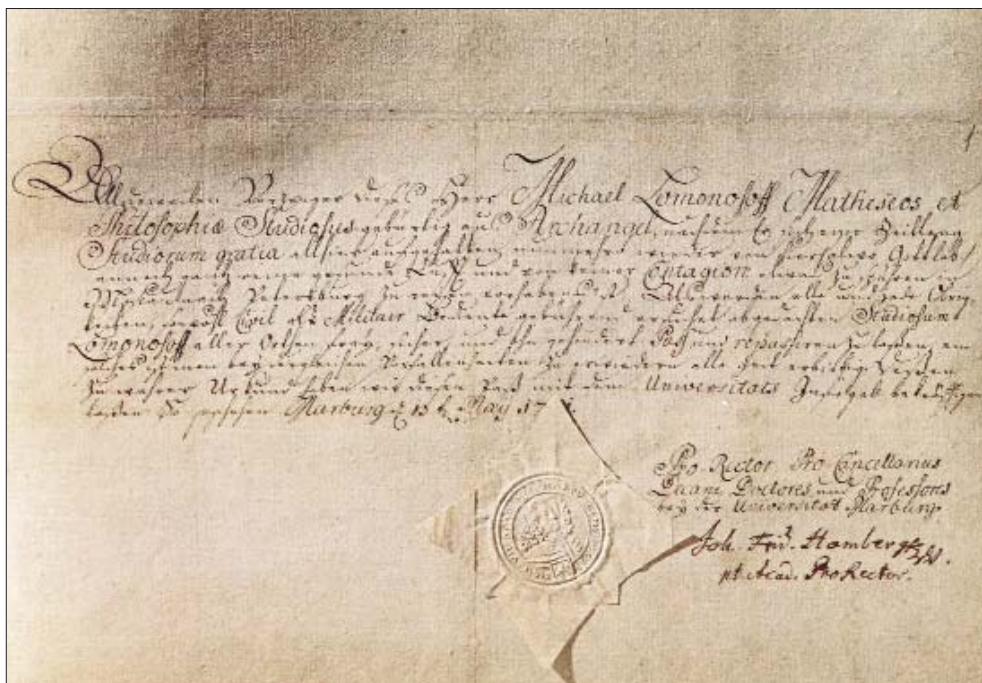 Alldieweilen Vorzeiger dieses Herr Michael Lomonosoff Matheseos et
Philosophiæ Studiosus gebürtig aus Archangel, nachdem Er sich eine Zeitlang
Studiorum gratia allhier aufgehalten, nunmehro wieder von Gottlob!
annoch gantz reine gesunde Lufft und von keiner Contagion etwas zu spüren
nach Petersburg zu reisen vorhabens ist. Alß werden alle und jede Obrig-
keiten, Civil als Militair Bediente gebührend ersuchet obgedachten Studiosum
Lomonosoff aller Orthen frey, sicher, und ohngehindert Paß und repassiren zu laßen, ein
solches ist man bey dergleichen Vorfallenheiten zu erwiedern alle Zeit erbietig. Deßen
zu wahrer Urkund haben wir diesen Paß mit dem Universitäts Insiegel bekräfftigen
laßen. So geschehen Marburg May 17
Pro-Rector Pro Cancellarius
Decani Doctores und Professores
bey der Universität Marburg.
Joh. Frid. Homberg
pt Acad. ProRector.